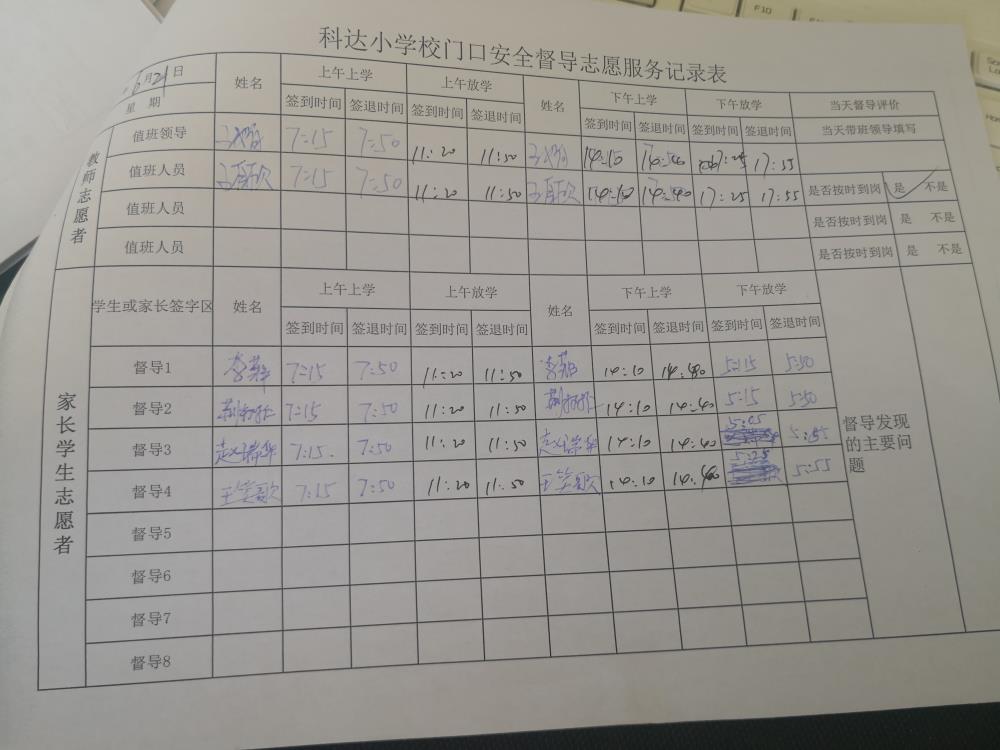 科达小学校门口安全督导志愿服务记录表
月21日 姓名 上午上学 上午放学 姓名 下午上学 下午放学 当天督导评价
星期 签到时间 签退时间 签到时间 签退时间 签到时间 签退时间 签到时间 签退时间 当天带班领导填写
教师志愿者
值班领导 7:15 7:50 11:20 11:50 14:10 14:40 17:25 17:55
值班人员 7:15 7:50 11:20 11:50 14:10 14:40 17:25 17:55 是否按时到岗 是 不是
值班人员 是否按时到岗 是 不是
值班人员 是否按时到岗 是 不是
家长学生志愿者
学生或家长签字区 姓名 上午上学 上午放学 姓名 下午上学 下午放学
签到时间 签退时间 签到时间 签退时间 签到时间 签退时间 签到时间 签退时间
督导1 7:15 7:50 11:20 11:50 14:10 14:40 5:15 5:50
督导2 7:15 7:50 11:20 11:50 14:10 14:40 5:15 5:50
督导3 赵瑞华 7:15. 7:50 11:20 11:50 赵瑞华 14:10 14:40 5:55
督导4 王笑歌 7:15 7:50 11:20 11:50 王笑歌 14:10 14:40 5:25 5:55
督导5
督导6
督导7
督导8
督导发现
的主要问
题
F10